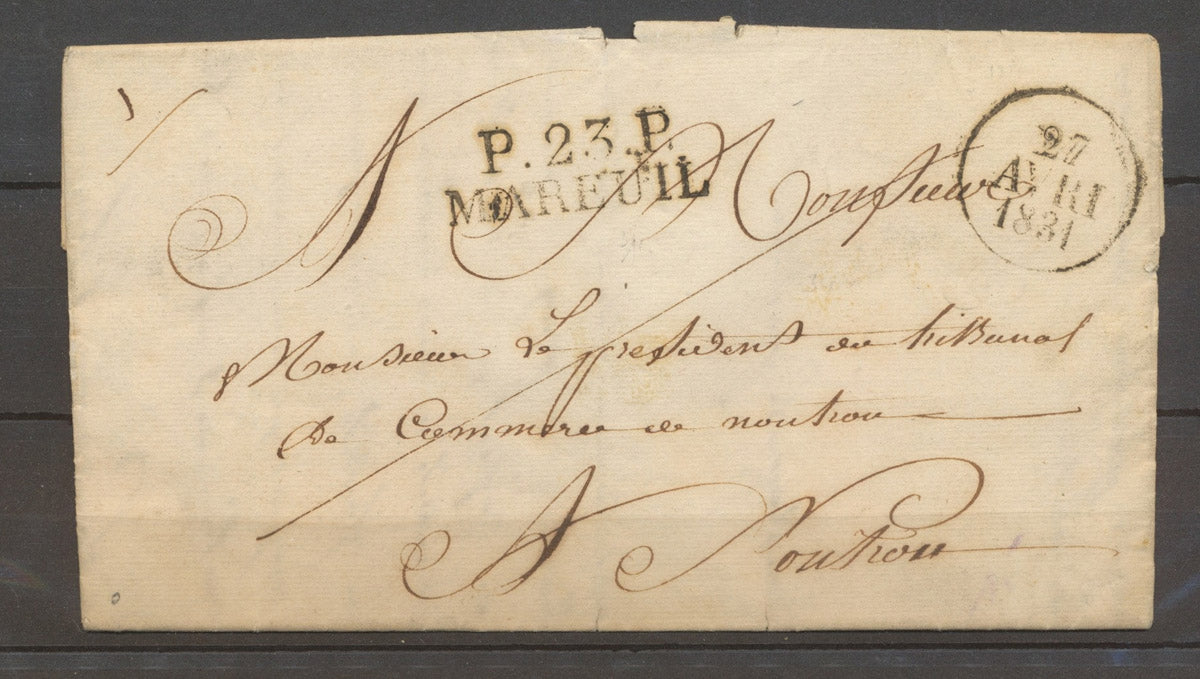 P.23.P.
MAREUIL
27
AVRI
1831
A Monsieur
Monsieur Le president du tribunal
de Commerce de nontron
A Nontron